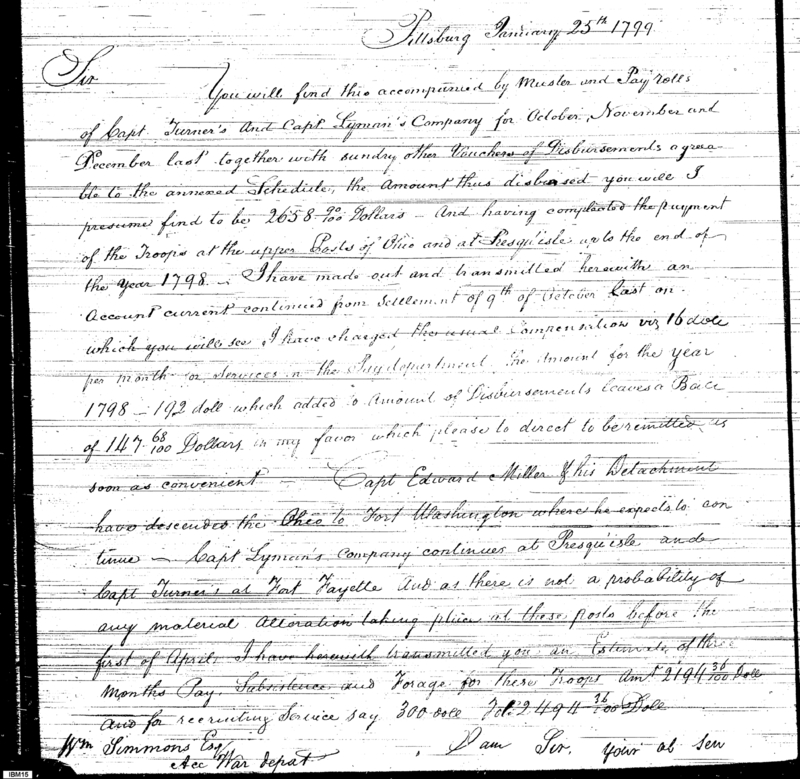 Pittsburg January 25th 1799
Sir
You will find this accompanied by Muster and Pay rolls
of Capt Turner's And Capt Lyman's Company for October, November and
December last together with sundry other Vouchers of Disbursements agrea
ble to the annexed Schedule, the Amount thus disbursed you will I
presume find to be 2658 90/100 Dollars - And having compleated the payment
of the Troops at the upper Posts of Ohio and at Presqu'isle up to the end of
the Year 1798 - I have made out and transmitted herewith an
Account current continued from Settlement of 9th of October last on
which you will see I have charged the usual Compensation viz 16 dolls
per month for Services in the Pay department the Amount for the year
1798 - 192 doll which added to Amount of Disbursements leaves a Balce
of 147 68/100 Dollars in my favor which please to direct to be remitted as
soon as convenient - Capt Edward Miller & his Detachment
have descended the Ohio to Fort Washington where he expects to con
tinue - Capt Lyman's Company continues at Presqu'isle and
Capt Turner's at Fort Fayette And as there is not a probability of
any material Alteration taking place at these posts before the
first of April, I have herewith transmitted you an Estimate of three
Months Pay, Subsistence and Forage for these Troops Amt 2194 36/100 Doll
and for recruiting Service say 300 doll Tot. 2494 36/100 Doll
Wm Simmons Esq
Acc War depat
I am Sir, Your ob Serv
IBM15